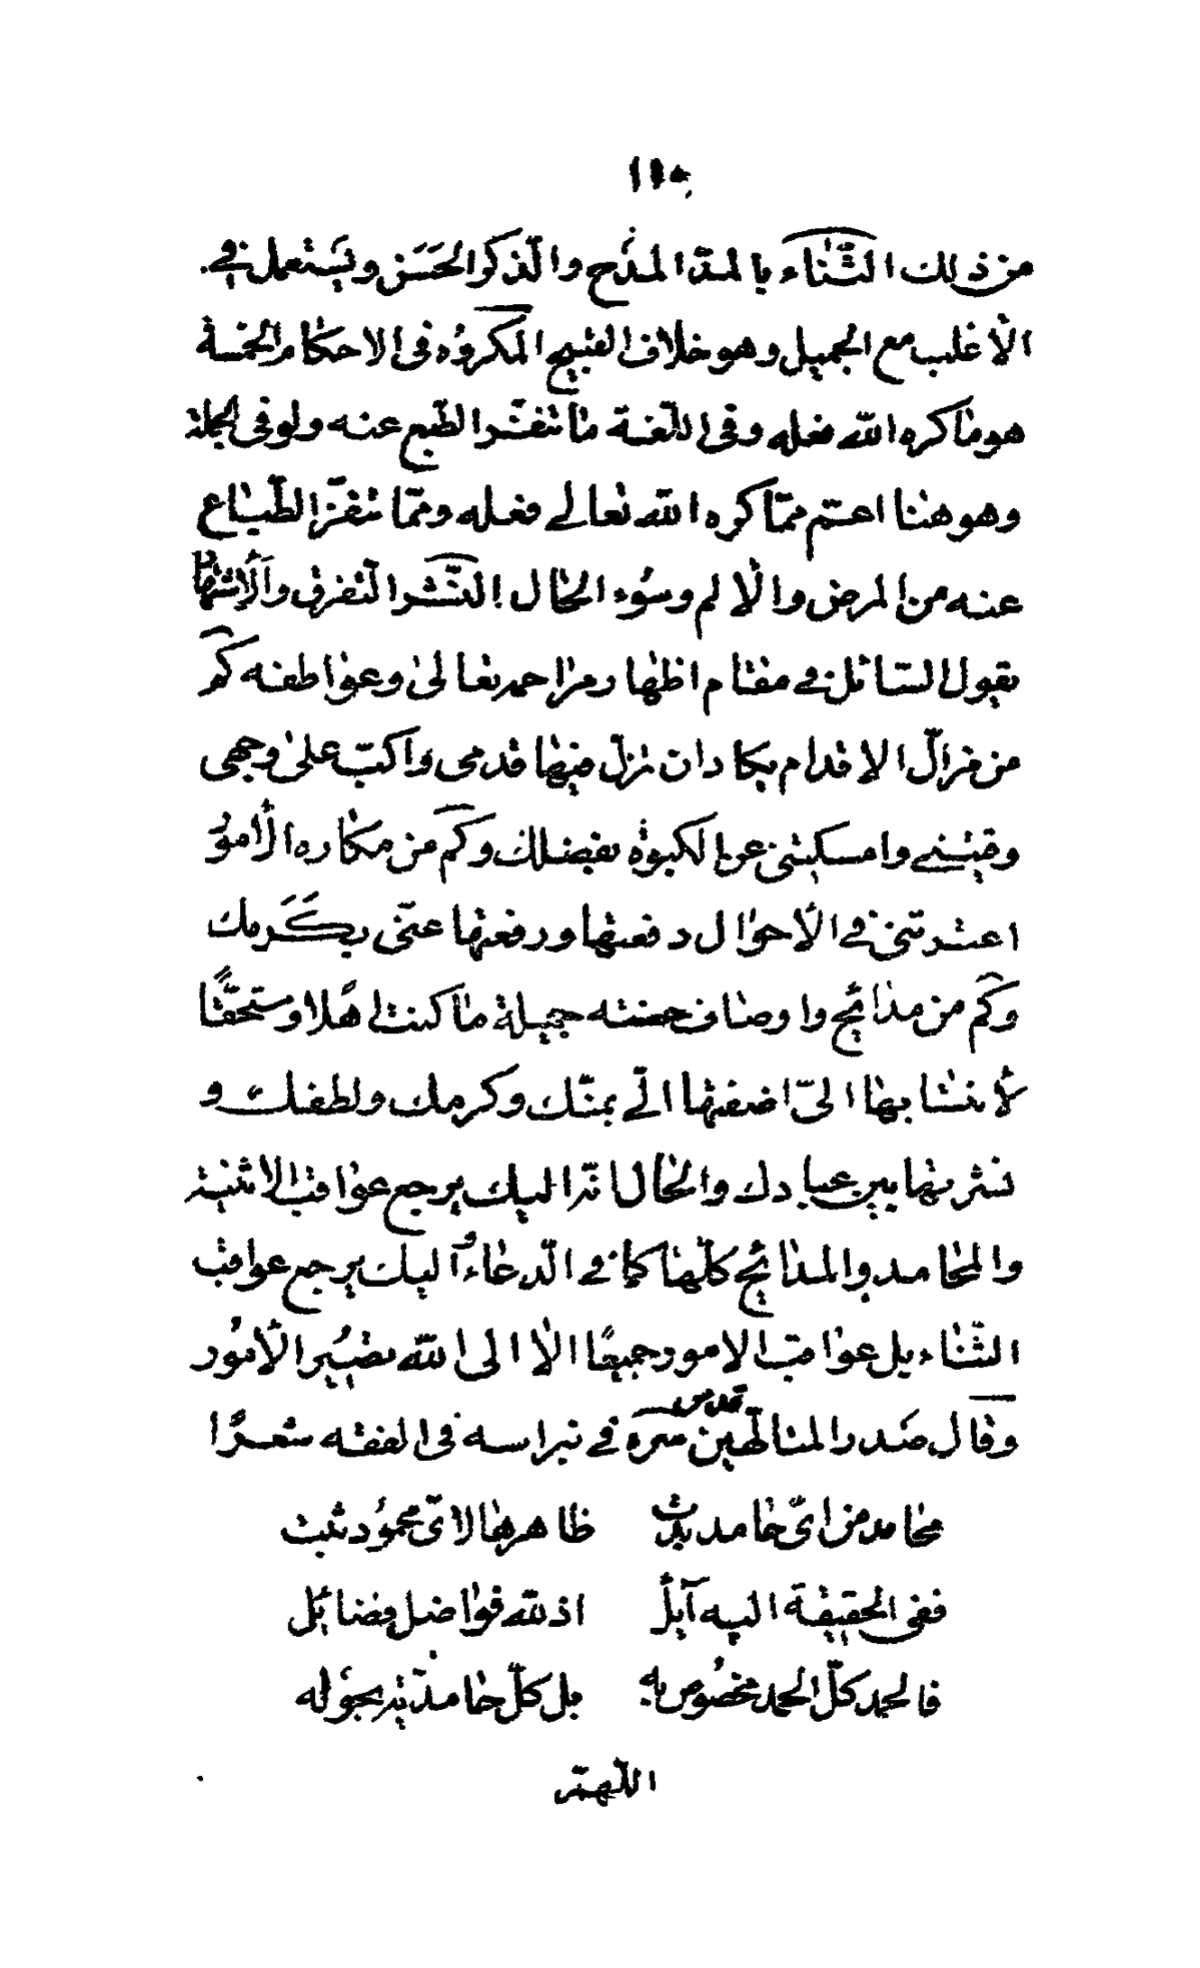 من ذلك الثّناء بالمدّ المدح والذّكر الحَسَن ويَستعمل في
الأغلب مع الجميل وهو خلاف القبيح المكروُه في الاحكام الخمسة
هو ما كره اللّه فعله وفي اللّغة ما تنفّر الطّبع عنه ولو في الجملة
وهو هنا اعمّ ممّا كره اللّه تعالى فعله وممّا تنفّر الطّباع
عنه من المرض والألم وسُوء الحال النّشر التّفرق والأشتهار
يقول السّائل في مقام اظهار مراحمه تعالى وعواطفه كم
من مزالّ الاقدام يكاد ان تزلّ فيها قدمى واكبّ على وجهى
وقيتني وامسكتني عن الكبوة بفضلك وكم من مكاره الأموُر
اعترتني في الأحوال دفعتها ورفعتها عنّى بكَرَمك
وكم من مدائح واوصاف حسنة جميلة ما كنت اهلًا ومستحقًّا
لأنتسابها الىّ اضفتها الىّ بمنّك وكرمك ولطفك و
نشرتها بين عبادك والحال انّه اليك يرجع عواقب الاثنية
والمحامد والمدائح كلّها كما في الدّعاء واليك يرجع عواقب
الثّناء بل عواقب الامور جميعًا الا الى اللّه تصيُر الأموُر
وقال صَدر المتالّهين قدس سرّه في نبراسه في الفقه شعرًا
محامد من اىّ حامد بدت ظاهرها لاىّ محموُد ثبت
ففي الحقيقة اليه آيلُ اذ للّه فواضل فضائل
فالحمد كلّ الحمد مخصُوص به بل كلّ حامديّة بحوَله
اللّهمّ